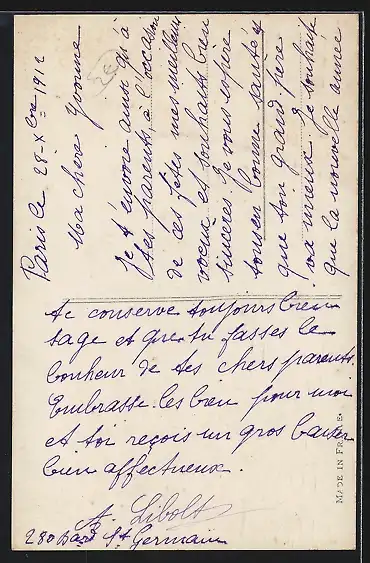 Paris le 28-Xbre-1912
Ma chere Yvonne
Je t'envoie ainsi qu'à
tes parents à l'occasion
de ces fêtes mes meilleurs
voeux et souhaits bien
sincères Je vous espère
tous en bonne santé et
que ton grand père
va mieux Je souhaite
que la nouvelle année
te conserve toujours bien
sage et que tu fasses le
bonheur de tes chers parents.
Embrasse-les bien pour moi
et toi reçois un gros baiser
bien affectueux.
A. Libolt
280 Bard St Germain
MADE IN FRANCE